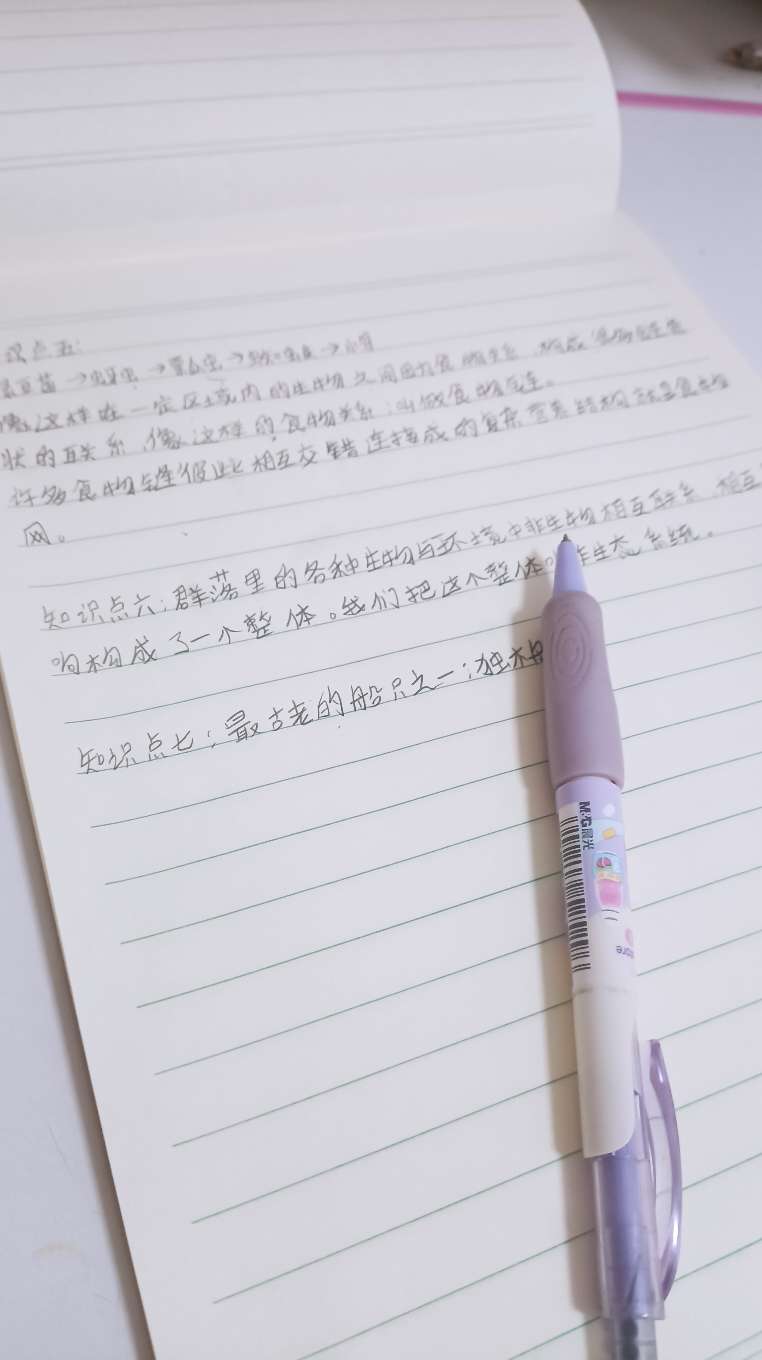 识点五：
豆苗→蚜虫→瓢虫→
像这样在一定区域内的生物之间因的食物关系，构成
状的联系，像这样的食物关系，叫做食物链。
许多食物链彼此相互交错连接成的复杂营养结构就是食物
网。
知识点六：群落里的各种生物与环境中非生物相互联系，相互
响构成了一个整体。我们把这个整体 作生态系统。
知识点七：最古老的船只之一：独木
M&G晨光